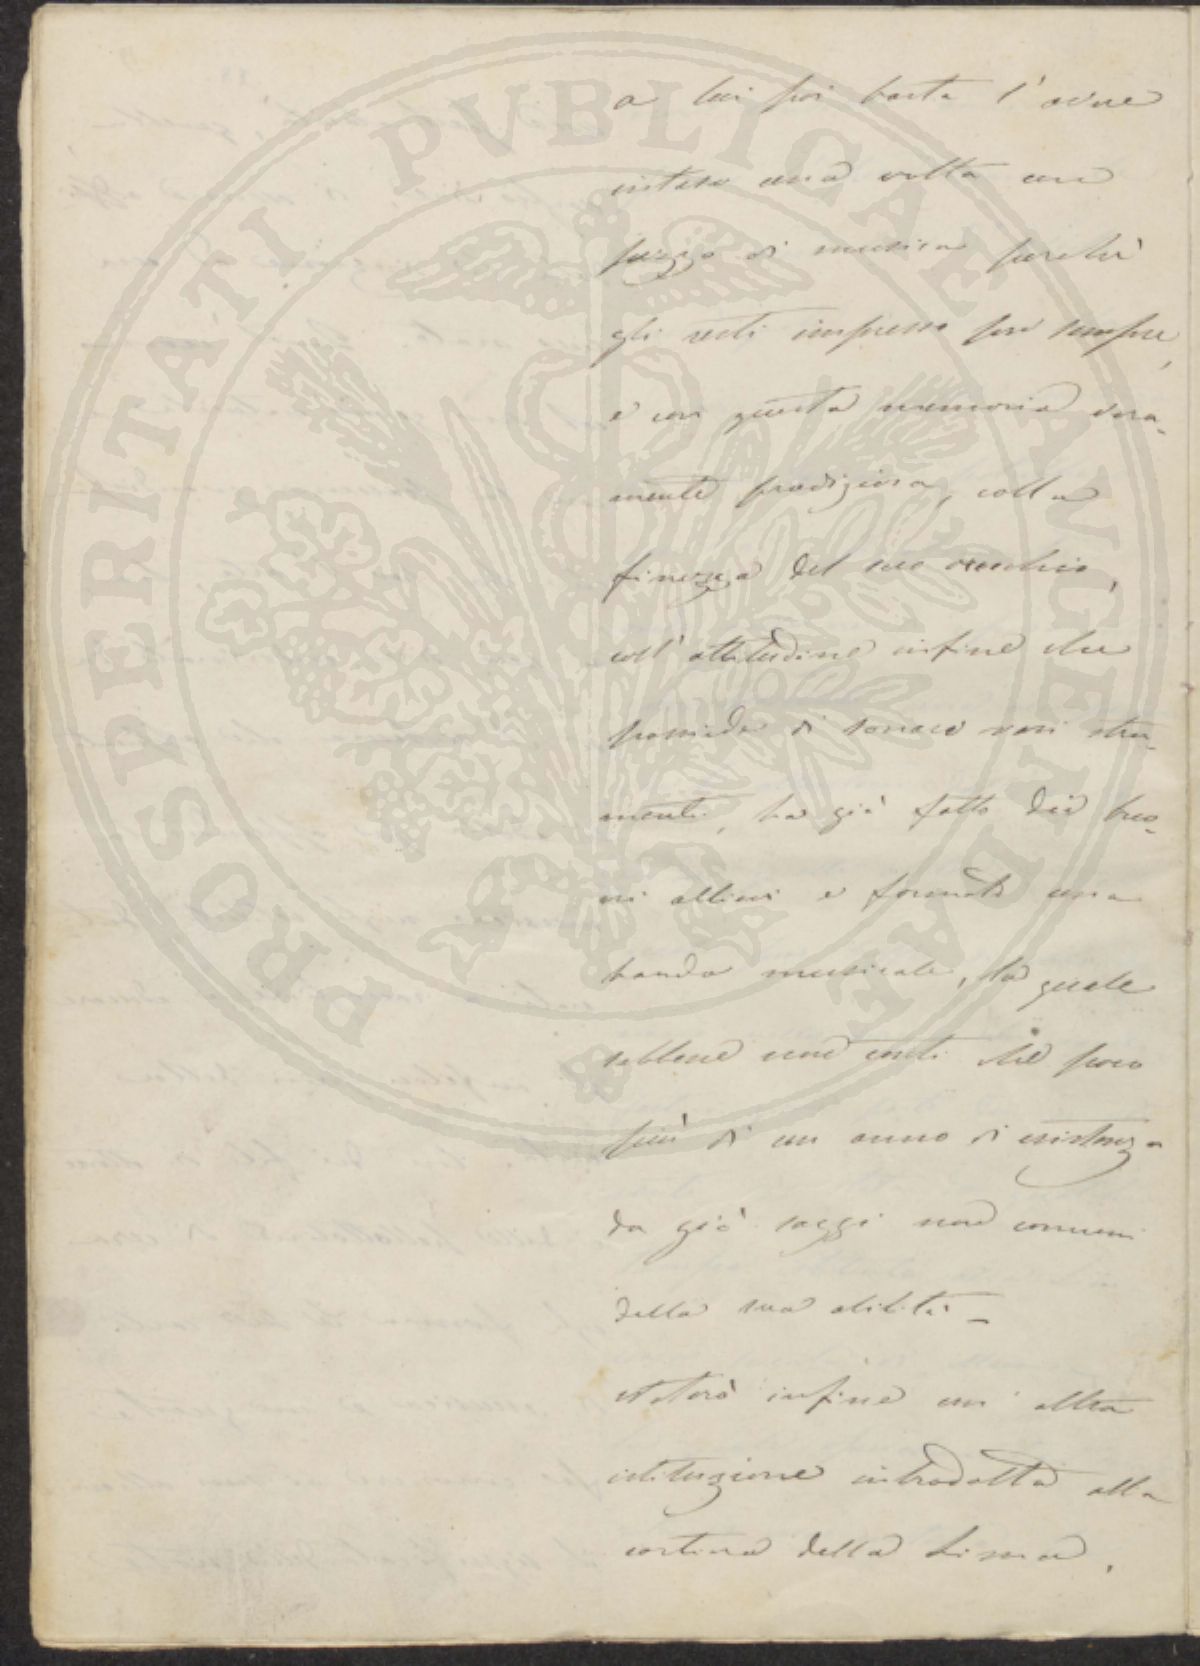 a lui poi basta l'avere
inteso una volta un
pezzo di musica perchè
gli resti impresso per sempre,
e con questa memoria vera-
mente prodigiosa, colla
finezza del suo orecchio,
coll'attitudine infine che
possiede di sonare vari stru-
menti, ha già fatto dei buo-
ni allievi e formato una
banda musicale, la quale
sebbene non conti che poco
più di un anno di esistenza
da già saggi non comuni
della sua abilità -
Noterò infine un'altra
istituzione introdotta alla
cortina della Lima,
PROSPERITATI PVBLICAE AVGENDAE